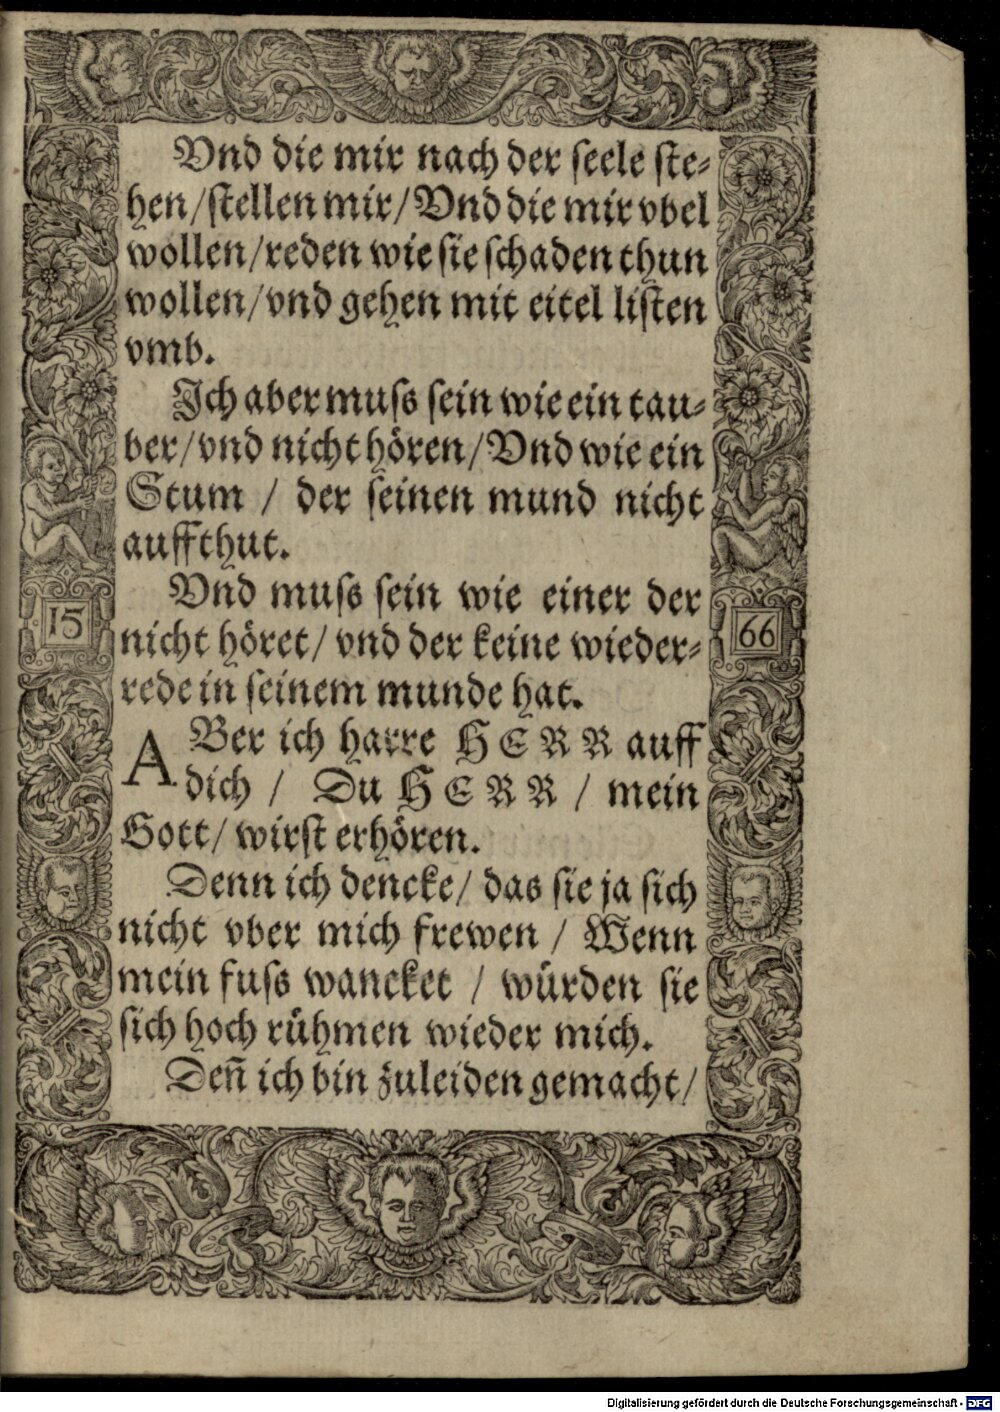 Vnd die mir nach der seele ste⸗
hen/stellen mir/Vnd die mir vbel
wollen/reden wie sie schaden thun
wollen/vnd gehen mit eitel listen
vmb.
Ich aber muss sein wie ein tau⸗
ber/vnd nicht hören/Vnd wie ein
Stum / der seinen mund nicht
auffthut.
Vnd muss sein wie einer der
nicht höret/ vnd der keine wieder⸗
rede in seinem munde hat.
15
66
ABer ich harre HERR auff
dich / Du HERR / mein
Gott/ wirst erhören.
Denn ich dencke/ das sie ja sich
nicht vber mich frewen / Wenn
mein fuss wancket / würden sie
sich hoch rühmen wieder mich.
Deñ ich bin zuleiden gemacht/
Digitalisierung gefördert durch die Deutsche Forschungsgemeinschaft - DFG